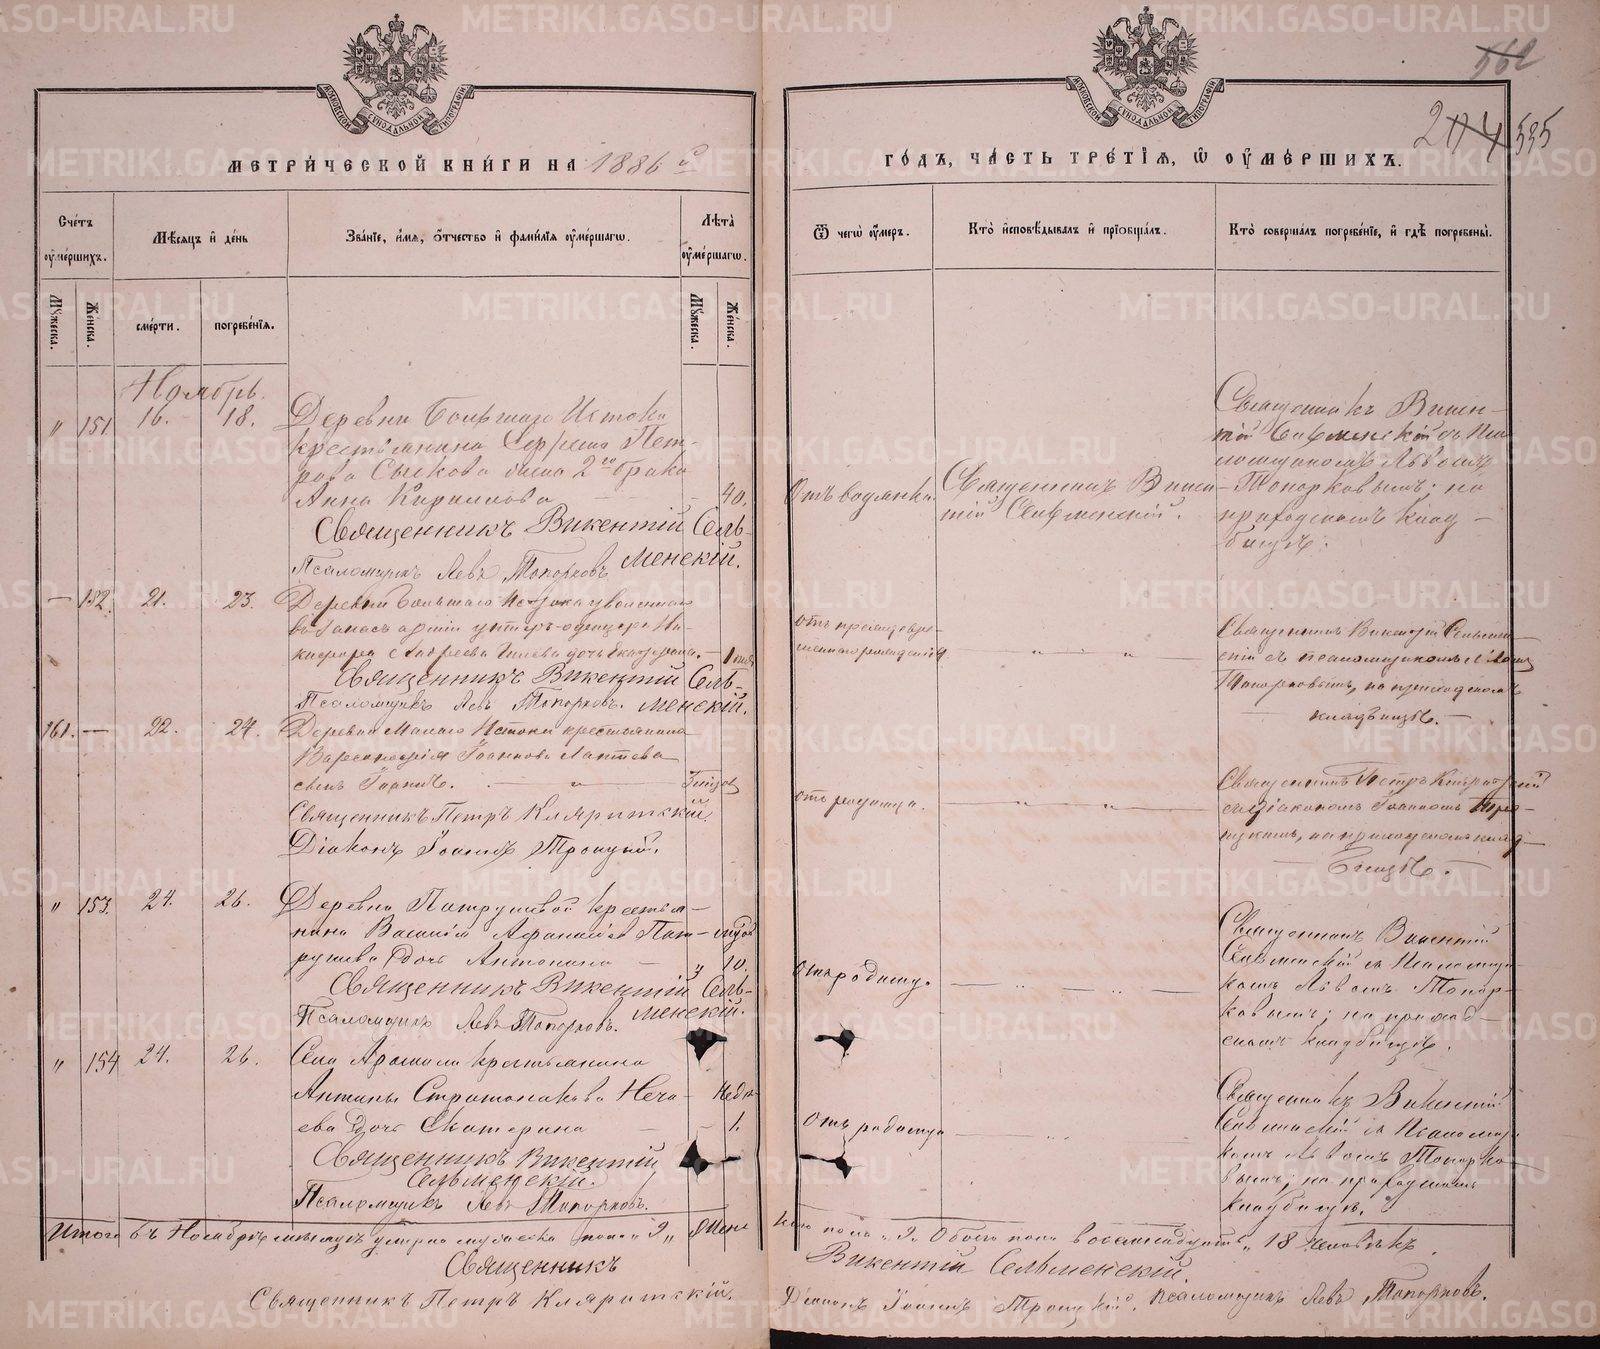 562
204 535
МЕТРИЧЕСКОЙ КНИГИ НА 1886 й
ГОДЪ, ЧАСТЬ ТРЕТІЯ, Ѿ ОУМЕРШИХЪ.
Счетъ оумершихъ.
Мѣсяцъ и день
Званіе, имя, отчество и фамилія оумершагѡ.
Лѣта оумершагѡ.
Ѿ чегѡ оумеръ.
Кто исповѣдывалъ и пріобщалъ.
Кто совершалъ погребеніе, и гдѣ погребены.
Мужеска.
Женска.
смерти.
погребенія.
Мужеска.
Женска.
Ноябрь.
" 151. 16. 18. Деревни Большаго Истока
крестьянина Сергея Пет-
рова Сыскова жена 2го брака
Анна Кирилова 40.
Священникъ Викентій Сель-
менскій.
Псаломщикъ Левъ Топорковъ
Отъ водянки.
Священникъ Викен-
тій Сельменскій.
Священникъ Викен-
тій Сельменскій съ Пса-
ломщикомъ Львомъ
Топорковымъ; на
приходскомъ клад-
бищѣ.
— 152. 21. 23. Деревни Большаго Истока уволеннаго
въ запасъ арміи унтеръ-офицера Ни-
кифора Андреева дочь Екатерина. 1
Священникъ Викентій Сель-
менскій.
Псаломщикъ Левъ Топорковъ.
отъ преждевре-
меннаго рожденія
Священникъ Викентій Сельмен-
скій съ псаломщикомъ Львомъ
Топорковымъ, на приходскомъ
кладбищѣ.
161. — 22. 24. Деревни Малаго Истока крестьянина
Варсонофія Іоаннова Лаптева
сынъ Іоаннъ.
Священникъ Петръ Кляритскій
Діаконъ Іоаннъ Троицкій.
отъ родимца.
Священникъ Петръ Кляритскій
съ діакономъ Іоанномъ Трои-
цкимъ, на приходскомъ клад-
бищѣ.
" 153. 24. 26. Деревни Патрушевой крестья-
нина Василія Афанасіева Пат-
рушева дочь Антонина 10.
Священникъ Викентій Сель-
менскій.
Псаломщикъ Левъ Топорковъ.
Отъ родимца.
Священникъ Викентій
Сельменскій съ Псаломщи-
комъ Львомъ Топор-
ковымъ; на приход-
скомъ кладбищѣ.
" 154 24. 26. Села Арамили крестьянина
Антипы Стратоникова Неча-
ева дочь Екатерина
недѣл. 1.
Священникъ Викентій
Сельменскій.
Псаломщикъ Левъ Топорковъ.
Отъ родимца
Священникъ Викентій
Сельменскій съ Псаломщи-
комъ Львомъ Топорко-
вымъ; на приходскомъ
кладбищѣ.
Итого въ Ноябрѣ мѣсяцѣ умерло мужеска пола „9„ Жен-
скаго пола „9„ Обоего пола восемнадцать „18 человѣкъ.
Священникъ Викентій Сельменскій.
Священникъ Петръ Кляритскій.
Діаконъ Іоаннъ Троицкій. Псаломщикъ Левъ Топорковъ.